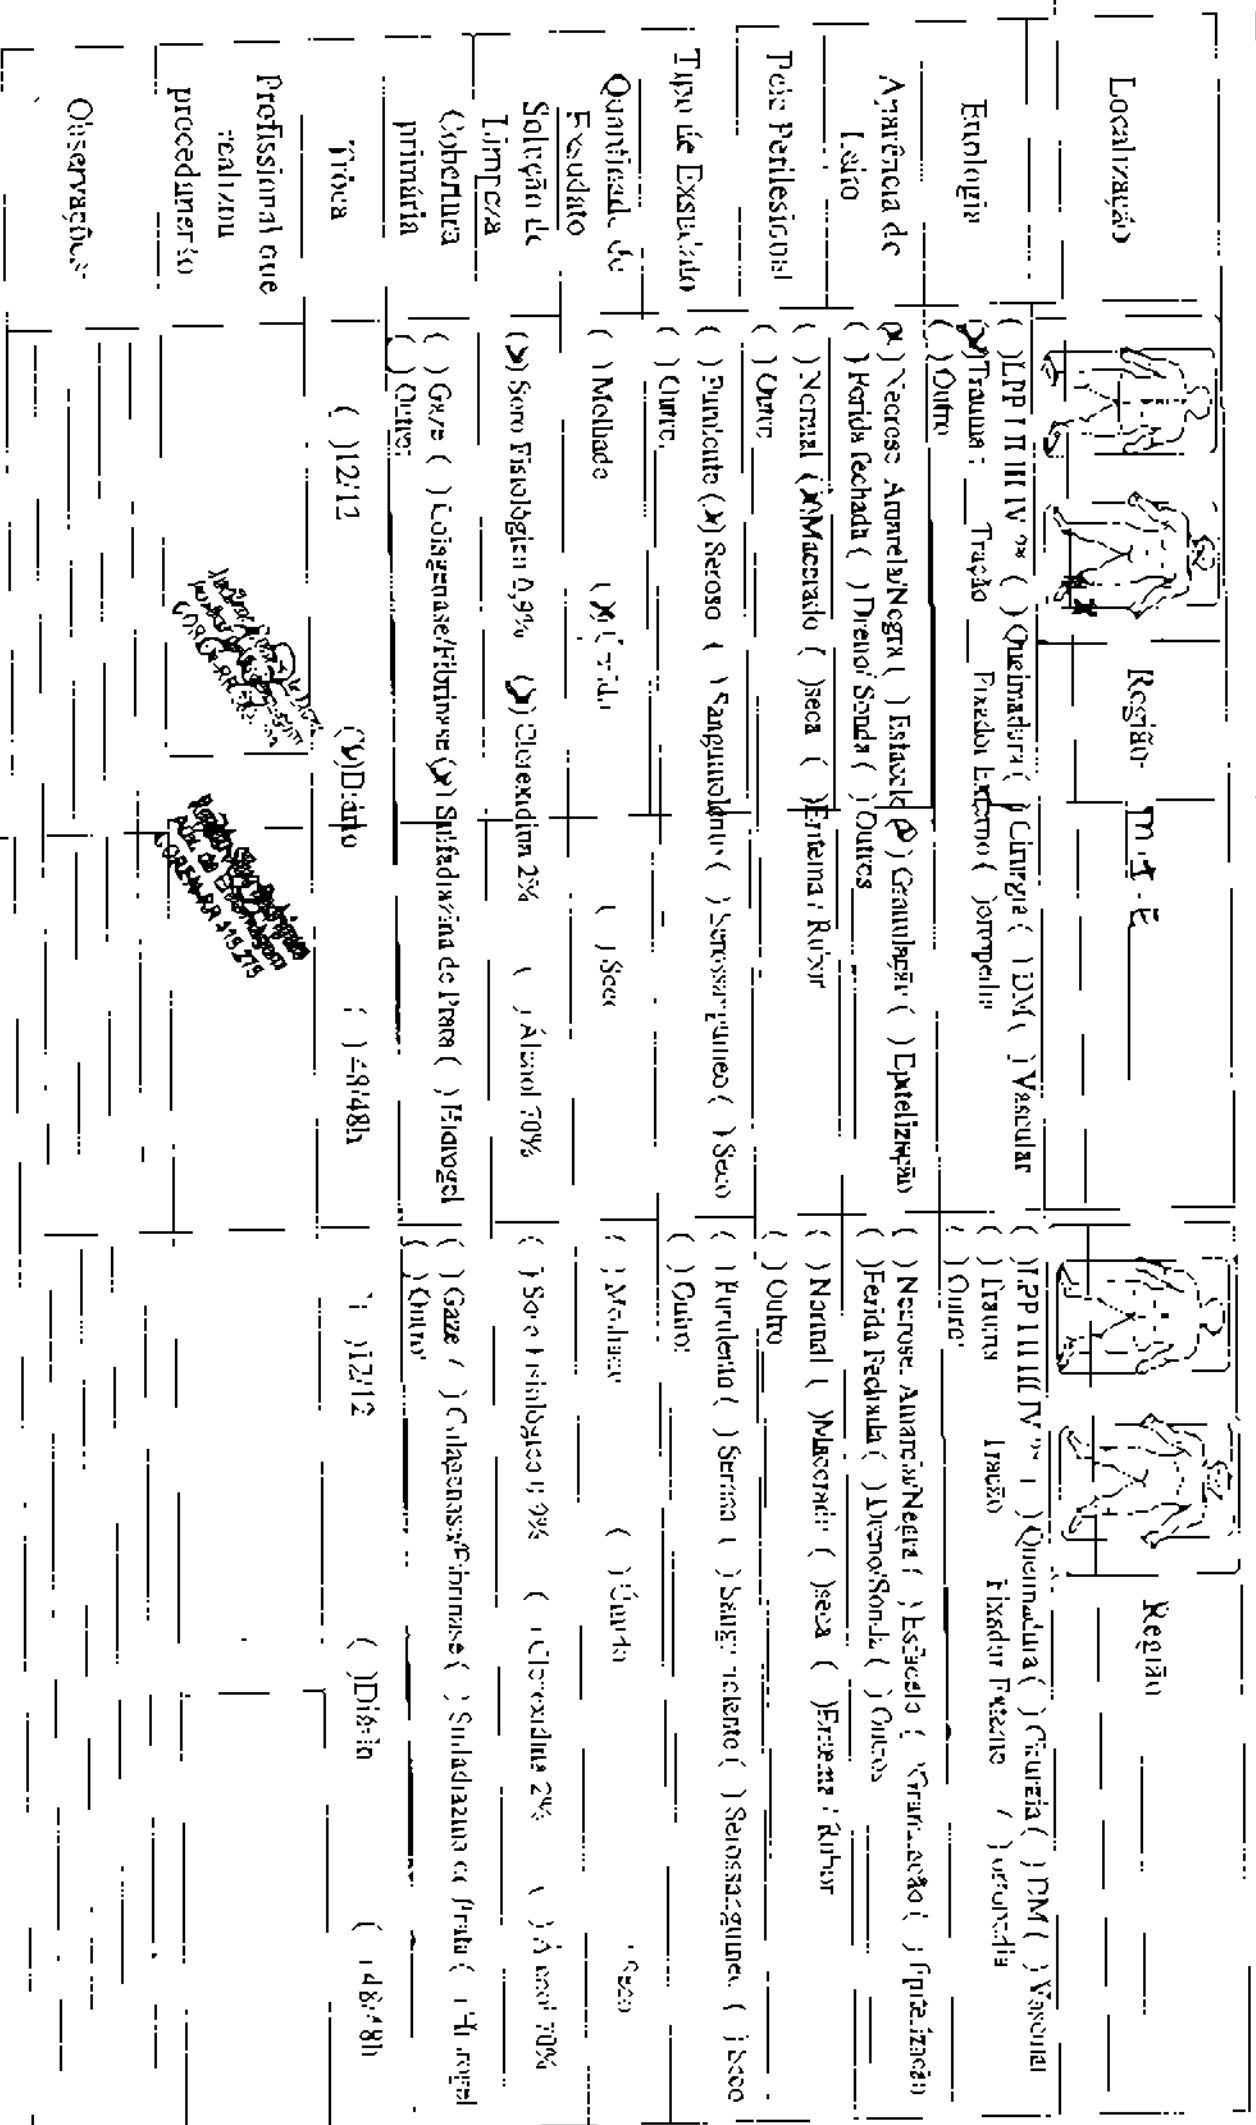 Localização
Região: M.I.E
Região
Etiologia
( )LPP I II III IV ( ) Queimadura ( ) Cirurgia ( ) DM ( ) Vascular
(x)Trauma: Tração Fixador Externo ( )ortopedia
( ) Outro
( )LPP I II III IV ( ) Queimadura ( ) Cirurgia ( ) DM ( ) Vascular
( ) Trauma Tração Fixador Externo ( ) ortopedia
( ) Outro:
Aparência do Leito
(x) Necrose Amarela/Negra ( ) Esfacelo (x) Granulação ( ) Epitelização
( ) Ferida fechada ( ) Dreno/Sonda ( ) Outros
( ) Necrose Amarela/Negra ( ) Esfacelo ( ) Granulação ( ) Epitelização
( )Ferida Fechada ( ) Dreno/Sonda ( ) Outros
Pele Perilesional
( ) Normal (x)Macerado ( )seca ( )Eritema / Rubor
( ) Outro
( ) Normal ( )Macerado ( )seca ( )Eritema / Rubor
( ) Outro
Tipo de Exsudato
( ) Purulento (x) Seroso ( ) Sanguinolento ( ) Serossanguineo ( ) Seco
( ) Outro:
( ) Purulento ( ) Seroso ( ) Sanguinolento ( ) Serossanguineo ( ) Seco
( ) Outro:
Quantidade de
Exsudato
( ) Molhado (x) Úmido ( ) Seco
( ) Molhado ( ) Úmido ( ) Seco
Solução de
Limpeza
(x) Soro Fisiológico 0,9% (x) Clorexidina 2% ( ) Álcool 70%
( ) Soro Fisiológico 0,9% ( ) Clorexidina 2% ( ) Álcool 70%
Cobertura
primária
( ) Gaze ( ) Colagenase/Fibrinase (x) Sulfadiazina de Prata ( ) Hidrogel
( ) Outro:
( ) Gaze ( ) Colagenase/Fibrinase ( ) Sulfadiazina de Prata ( ) Hidrogel
( ) Outro:
Troca
( )12/12 (x)Diário ( ) 48/48h
( )12/12 ( )Diário ( ) 48/48h
Profissional que
realizou
procedimento
COREN-RR
COREN-RR 419.279
Observações: